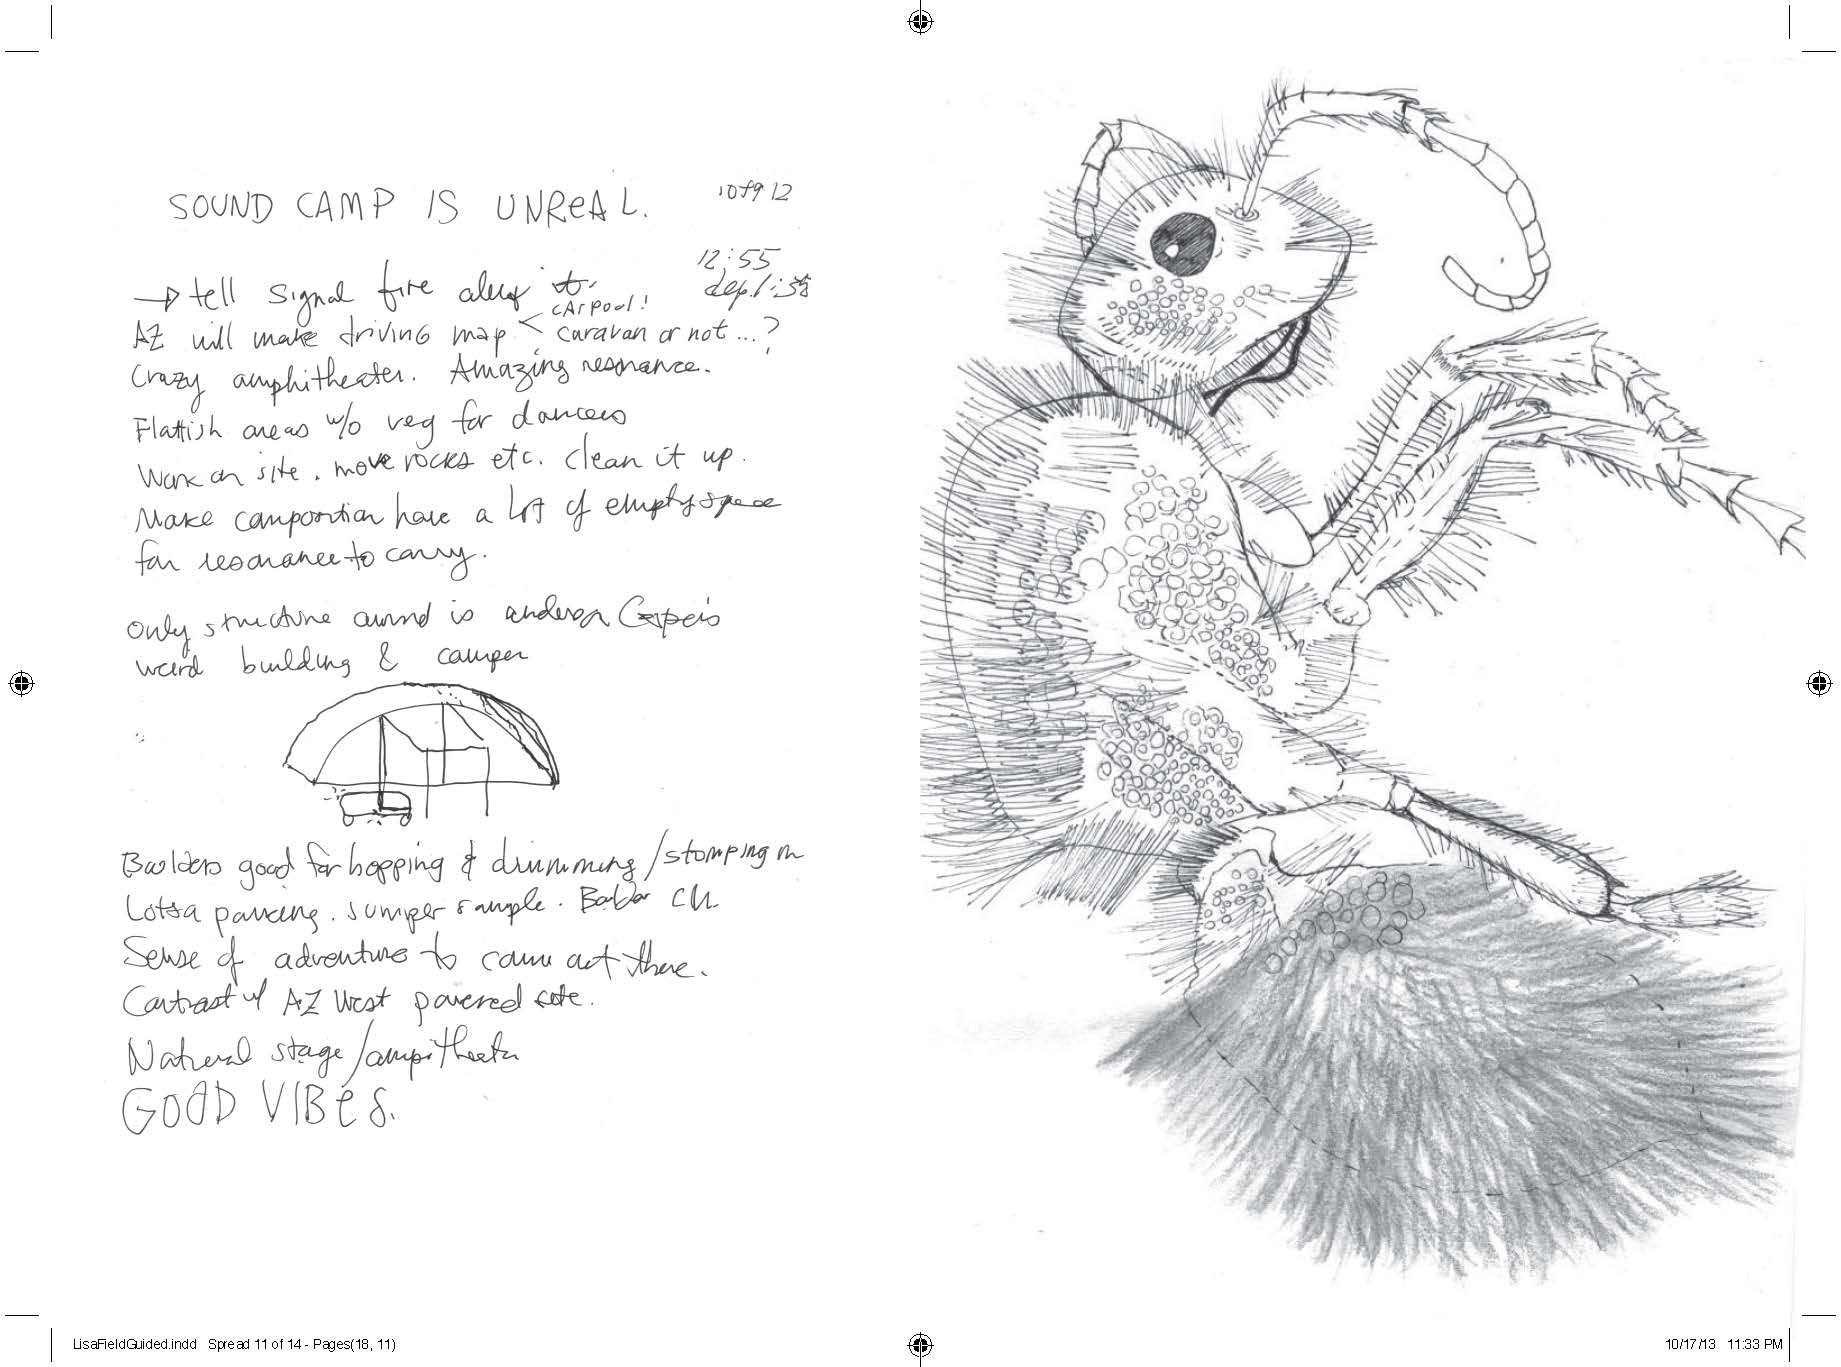 SOUND CAMP IS UNReAL.
12:55
→ tell signal fire
dep. 1:
CARPOOL!
AZ will make driving map < caravan or not...?
Crazy amphitheater. Amazing resonance.
Flattish areas w/o veg for dancers
Work on site. move rocks etc. clean it up.
Make composition have a lot of empty space
for resonance to carry.
Only structure around is
weird building & camper
good for bopping & drumming/stomping on
Lotsa parking.
Sense of adventure to come out there.
Contrast w/ AZ West powered site.
Natural stage/ampitheater
GOOD VIBeS.
LisaFieldGuided.indd Spread 11 of 14 - Pages(18, 11)
10/17/13 11:33 PM